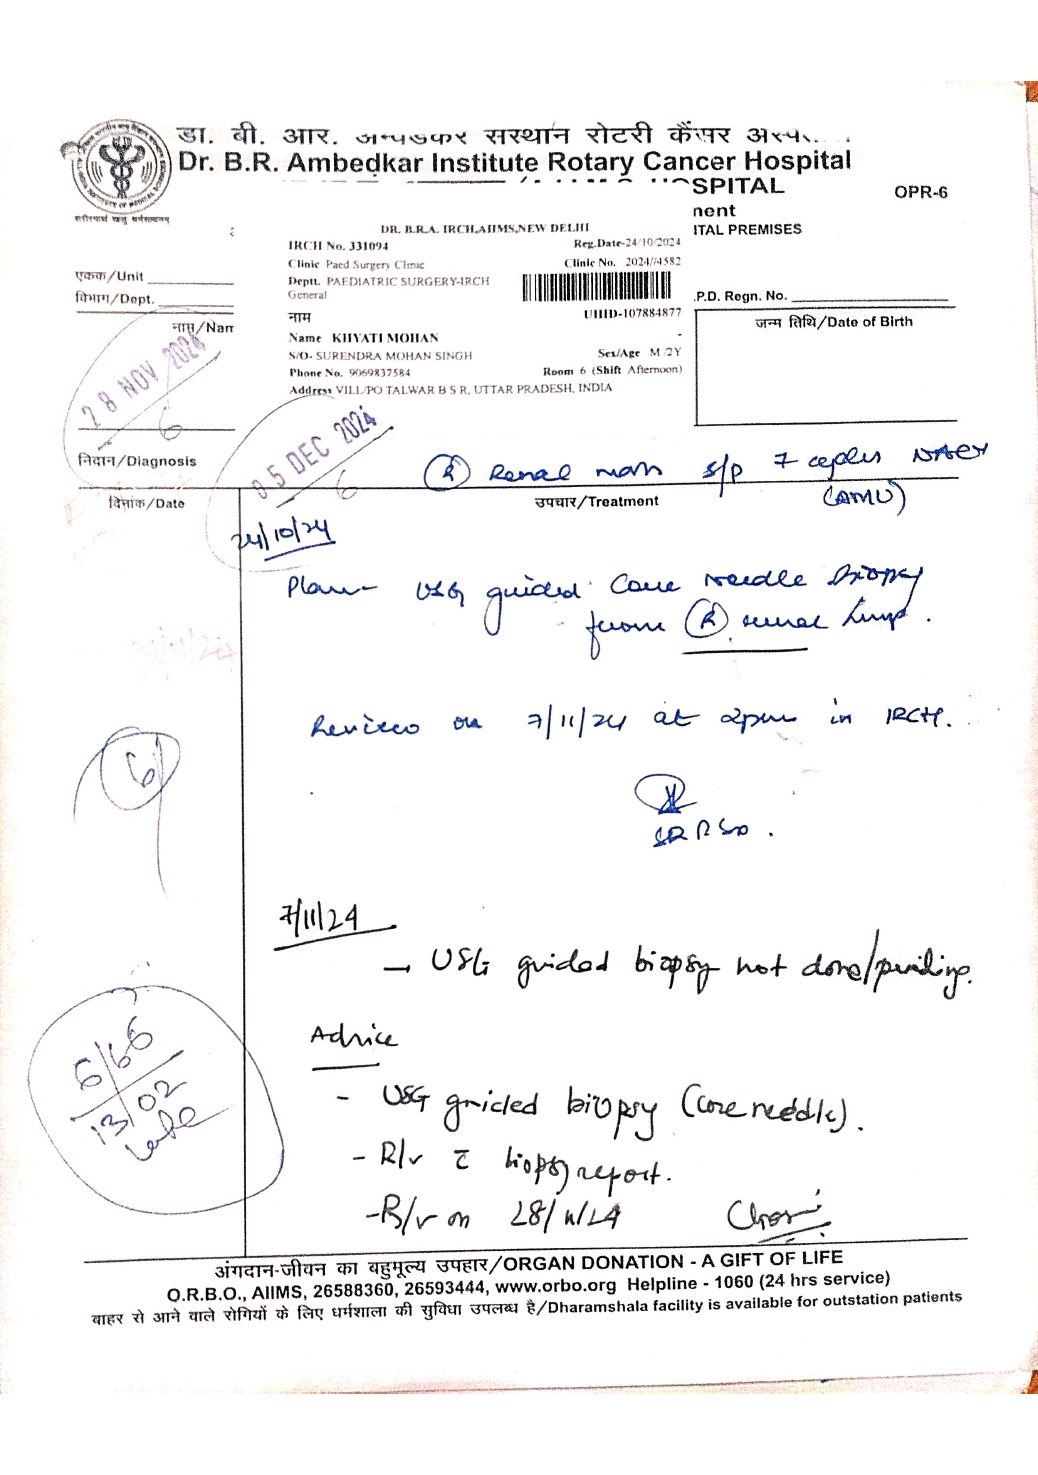 डा. बी. आर. अम्बेडकर संस्थान रोटरी कैंसर
Dr. B.R. Ambedkar Institute Rotary Cancer Hospital
SPITAL
OPR-6
nent
ITAL PREMISES
DR. B.R.A. IRCH,AIIMS,NEW DELHI
IRCH No. 331094 Reg.Date-24/10/2024
Clinic Paed Surgery Clinic Clinic No. 2024//4582
एकक/Unit
Deptt. PAEDIATRIC SURGERY-IRCH
General
विभाग/Dept.
.P.D. Regn. No.
नाम UHID-107884877
जन्म तिथि/Date of Birth
नाम/Nam
Name KHYATI MOHAN
S/O- SURENDRA MOHAN SINGH Sex/Age M /2Y
Phone No. 9069837584 Room 6 (Shift Afternoon)
Address VILL/PO TALWAR B S R, UTTAR PRADESH, INDIA
28 NOV 2024
6
05 DEC 2024
6
निदान/Diagnosis
(R) Renal mass S/P 7 cycles NACT
(AMU)
दिनांक/Date उपचार/Treatment
24/10/24
Plan- USG guided Core Needle Biopsy
from (R) renal lump.
Review on 7/11/24 at 2pm in IRCH.
6
7/11/24
→ USG guided biopsy not done/pending.
Advice
- USG guided biopsy (core needle).
- R/v c biopsy report.
- R/v on 28/11/24
6/66
13/02
अंगदान-जीवन का बहुमूल्य उपहार/ORGAN DONATION - A GIFT OF LIFE
O.R.B.O., AIIMS, 26588360, 26593444, www.orbo.org Helpline - 1060 (24 hrs service)
बाहर से आने वाले रोगियों के लिए धर्मशाला की सुविधा उपलब्ध है/Dharamshala facility is available for outstation patients